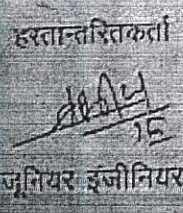 हस्तान्तरितकर्ता
JE
जूनियर इंजीनियर